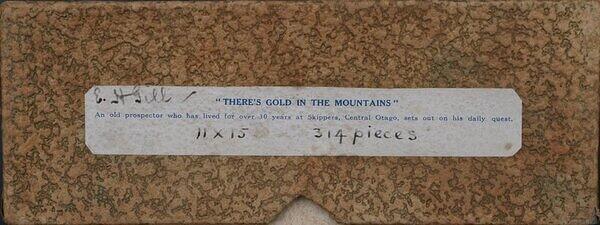 E. H Gill — "THERE'S GOLD IN THE MOUNTAINS"
An old prospector who has lived for over 30 years at Skippers, Central Otago, sets out on his daily quest.
11 x 15 314 pieces